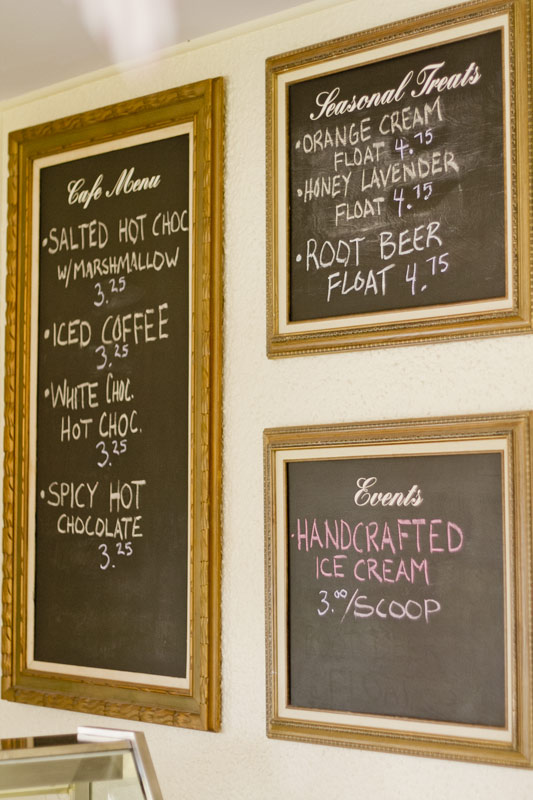 Cafe Menu
•SALTED HOT CHOC
W/MARSHMALLOW
3.25
•ICED COFFEE
3.25
•WHITE CHOC.
HOT CHOC.
3.25
•SPICY HOT
CHOCOLATE
3.25
Seasonal Treats
•ORANGE CREAM
FLOAT 4.75
•HONEY LAVENDER
FLOAT 4.75
•ROOT BEER
FLOAT 4.75
Events
•HANDCRAFTED
ICE CREAM
3.00/SCOOP